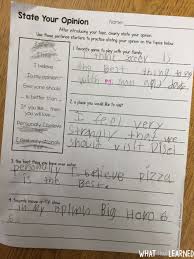 State Your Opinion
Name
After introducing your topic, clearly state your opinion.
Use these sentence starters to practice stating your opinion on the topics below.
I think...
I believe
In my opinion...
Everyone should
is better than
If you like..., then you will love...
Personally, I believe
I feel very strongly that
1. favorite game to play with your family
the best thing to
with is mom and dad
2. a place you would like to visit
I feel very
strongly that we
should visit
3. the best thing you have ever eaten
personally I believe pizza
is the best.
4. favorite movie or TV show
in my Big Hero 6
WHAT I HAVE LEARNED